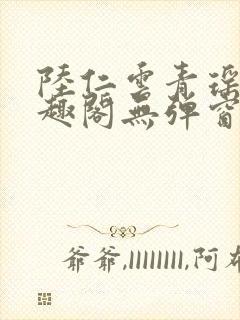 陸仁雲青瑤
趣閣無彈窗
爺爺,llllllll,阿布